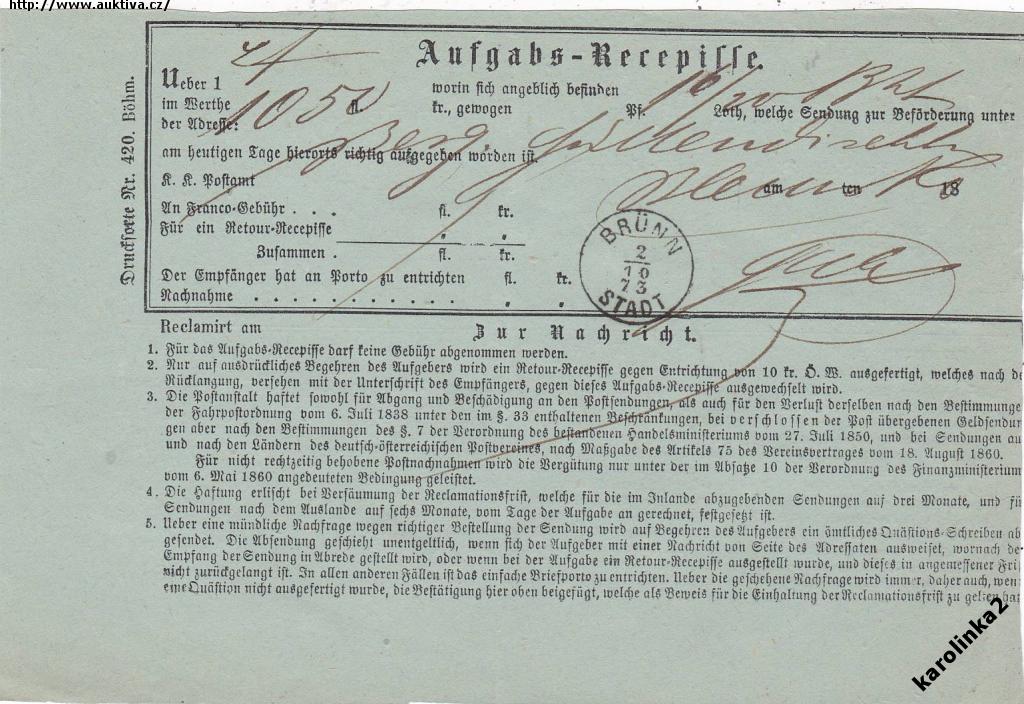 http://www.auktiva.cz/
Druckſorte Nr. 420. Böhm.
Aufgabs-Recepiſſe.
Ueber 1 worin ſich angeblich befinden
im Werthe 1050 fl. kr., gewogen Pf. Loth, welche Sendung zur Beförderung unter
der Adreſſe:
am heutigen Tage hierorts richtig aufgegeben worden iſt.
K. K. Poſtamt am ten 18
An Franco-Gebühr . . . fl. kr.
Für ein Retour-Recepiſſe
Zuſammen . fl. kr.
Der Empfänger hat an Porto zu entrichten fl. kr.
Nachnahme . . . . . . . . . . . .
BRÜNN
2
10
73
STADT
Reclamirt am Zur Nachricht.
1. Für das Aufgabs-Recepiſſe darf keine Gebühr abgenommen werden.
2. Nur auf ausdrückliches Begehren des Aufgebers wird ein Retour-Recepiſſe gegen Entrichtung von 10 kr. Ö. W. ausgefertigt, welches nach de
Rücklangung, verſehen mit der Unterſchrift des Empfängers, gegen dieſes Aufgabs-Recepiſſe ausgewechſelt wird.
3. Die Poſtanſtalt haftet ſowohl für Abgang und Beſchädigung an den Poſtſendungen, als auch für den Verluſt derſelben nach den Beſtimmunge
der Fahrpoſtordnung vom 6. Juli 1838 unter den im §. 33 enthaltenen Beſchränkungen, bei verſchloſſen der Poſt übergebenen Geldſendun
gen aber nach den Beſtimmungen des §. 7 der Verordnung des beſtandenen Handelsminiſteriums vom 27. Juli 1850, und bei Sendungen au
und nach den Ländern des deutſch-öſterreichiſchen Poſtvereines, nach Maßgabe des Artikels 75 des Vereinsvertrages vom 18. Auguſt 1860.
Für nicht rechtzeitig behobene Poſtnachnahmen wird die Vergütung nur unter der im Abſatze 10 der Verordnung des Finanzminiſterium
vom 6. Mai 1860 angedeuteten Bedingung geleiſtet.
4. Die Haftung erliſcht bei Verſäumung der Reclamationsfriſt, welche für die im Inlande abzugebenden Sendungen auf drei Monate, und fü
Sendungen nach dem Auslande auf ſechs Monate, vom Tage der Aufgabe an gerechnet, feſtgeſetzt iſt.
5. Ueber eine mündliche Nachfrage wegen richtiger Beſtellung der Sendung wird auf Begehren des Aufgebers ein ämtliches Quäſtions-Schreiben ab
geſendet. Die Abſendung geſchieht unentgeltlich, wenn ſich der Aufgeber mit einer Nachricht von Seite des Adreſſaten ausweiſet, wornach de
Empfang der Sendung in Abrede geſtellt wird, oder wenn bei der Aufgabe ein Retour-Recepiſſe ausgeſtellt wurde, und dieſes in angemeſſener Fri
nicht zurückgelangt iſt. In allen anderen Fällen iſt das einfache Briefporto zu entrichten. Ueber die geſchehene Nachfrage wird immer, daher auch, wen
eine Quäſtion nicht ausgefertigt wurde, die Beſtätigung hier oben beigefügt, welche als Beweis für die Einhaltung der Reclamationsfriſt zu gelten hat
karolinka2